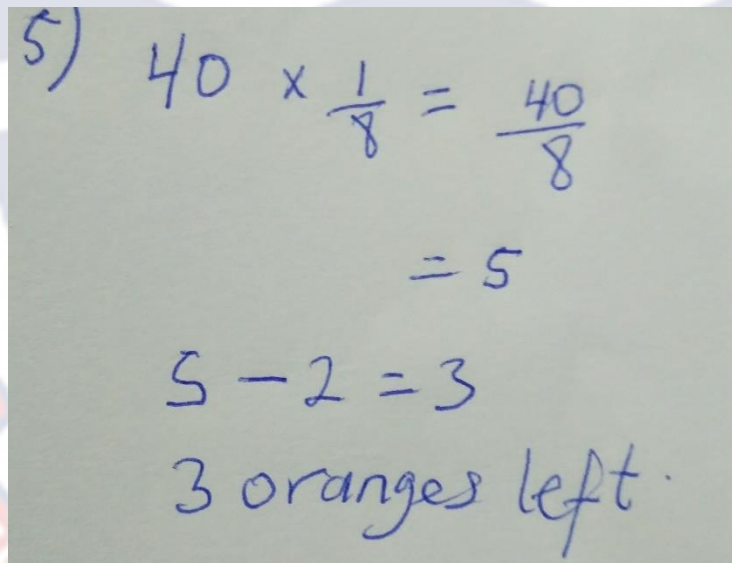 5) 40 × 1/8 = 40/8
= 5
5 - 2 = 3
3 oranges left.